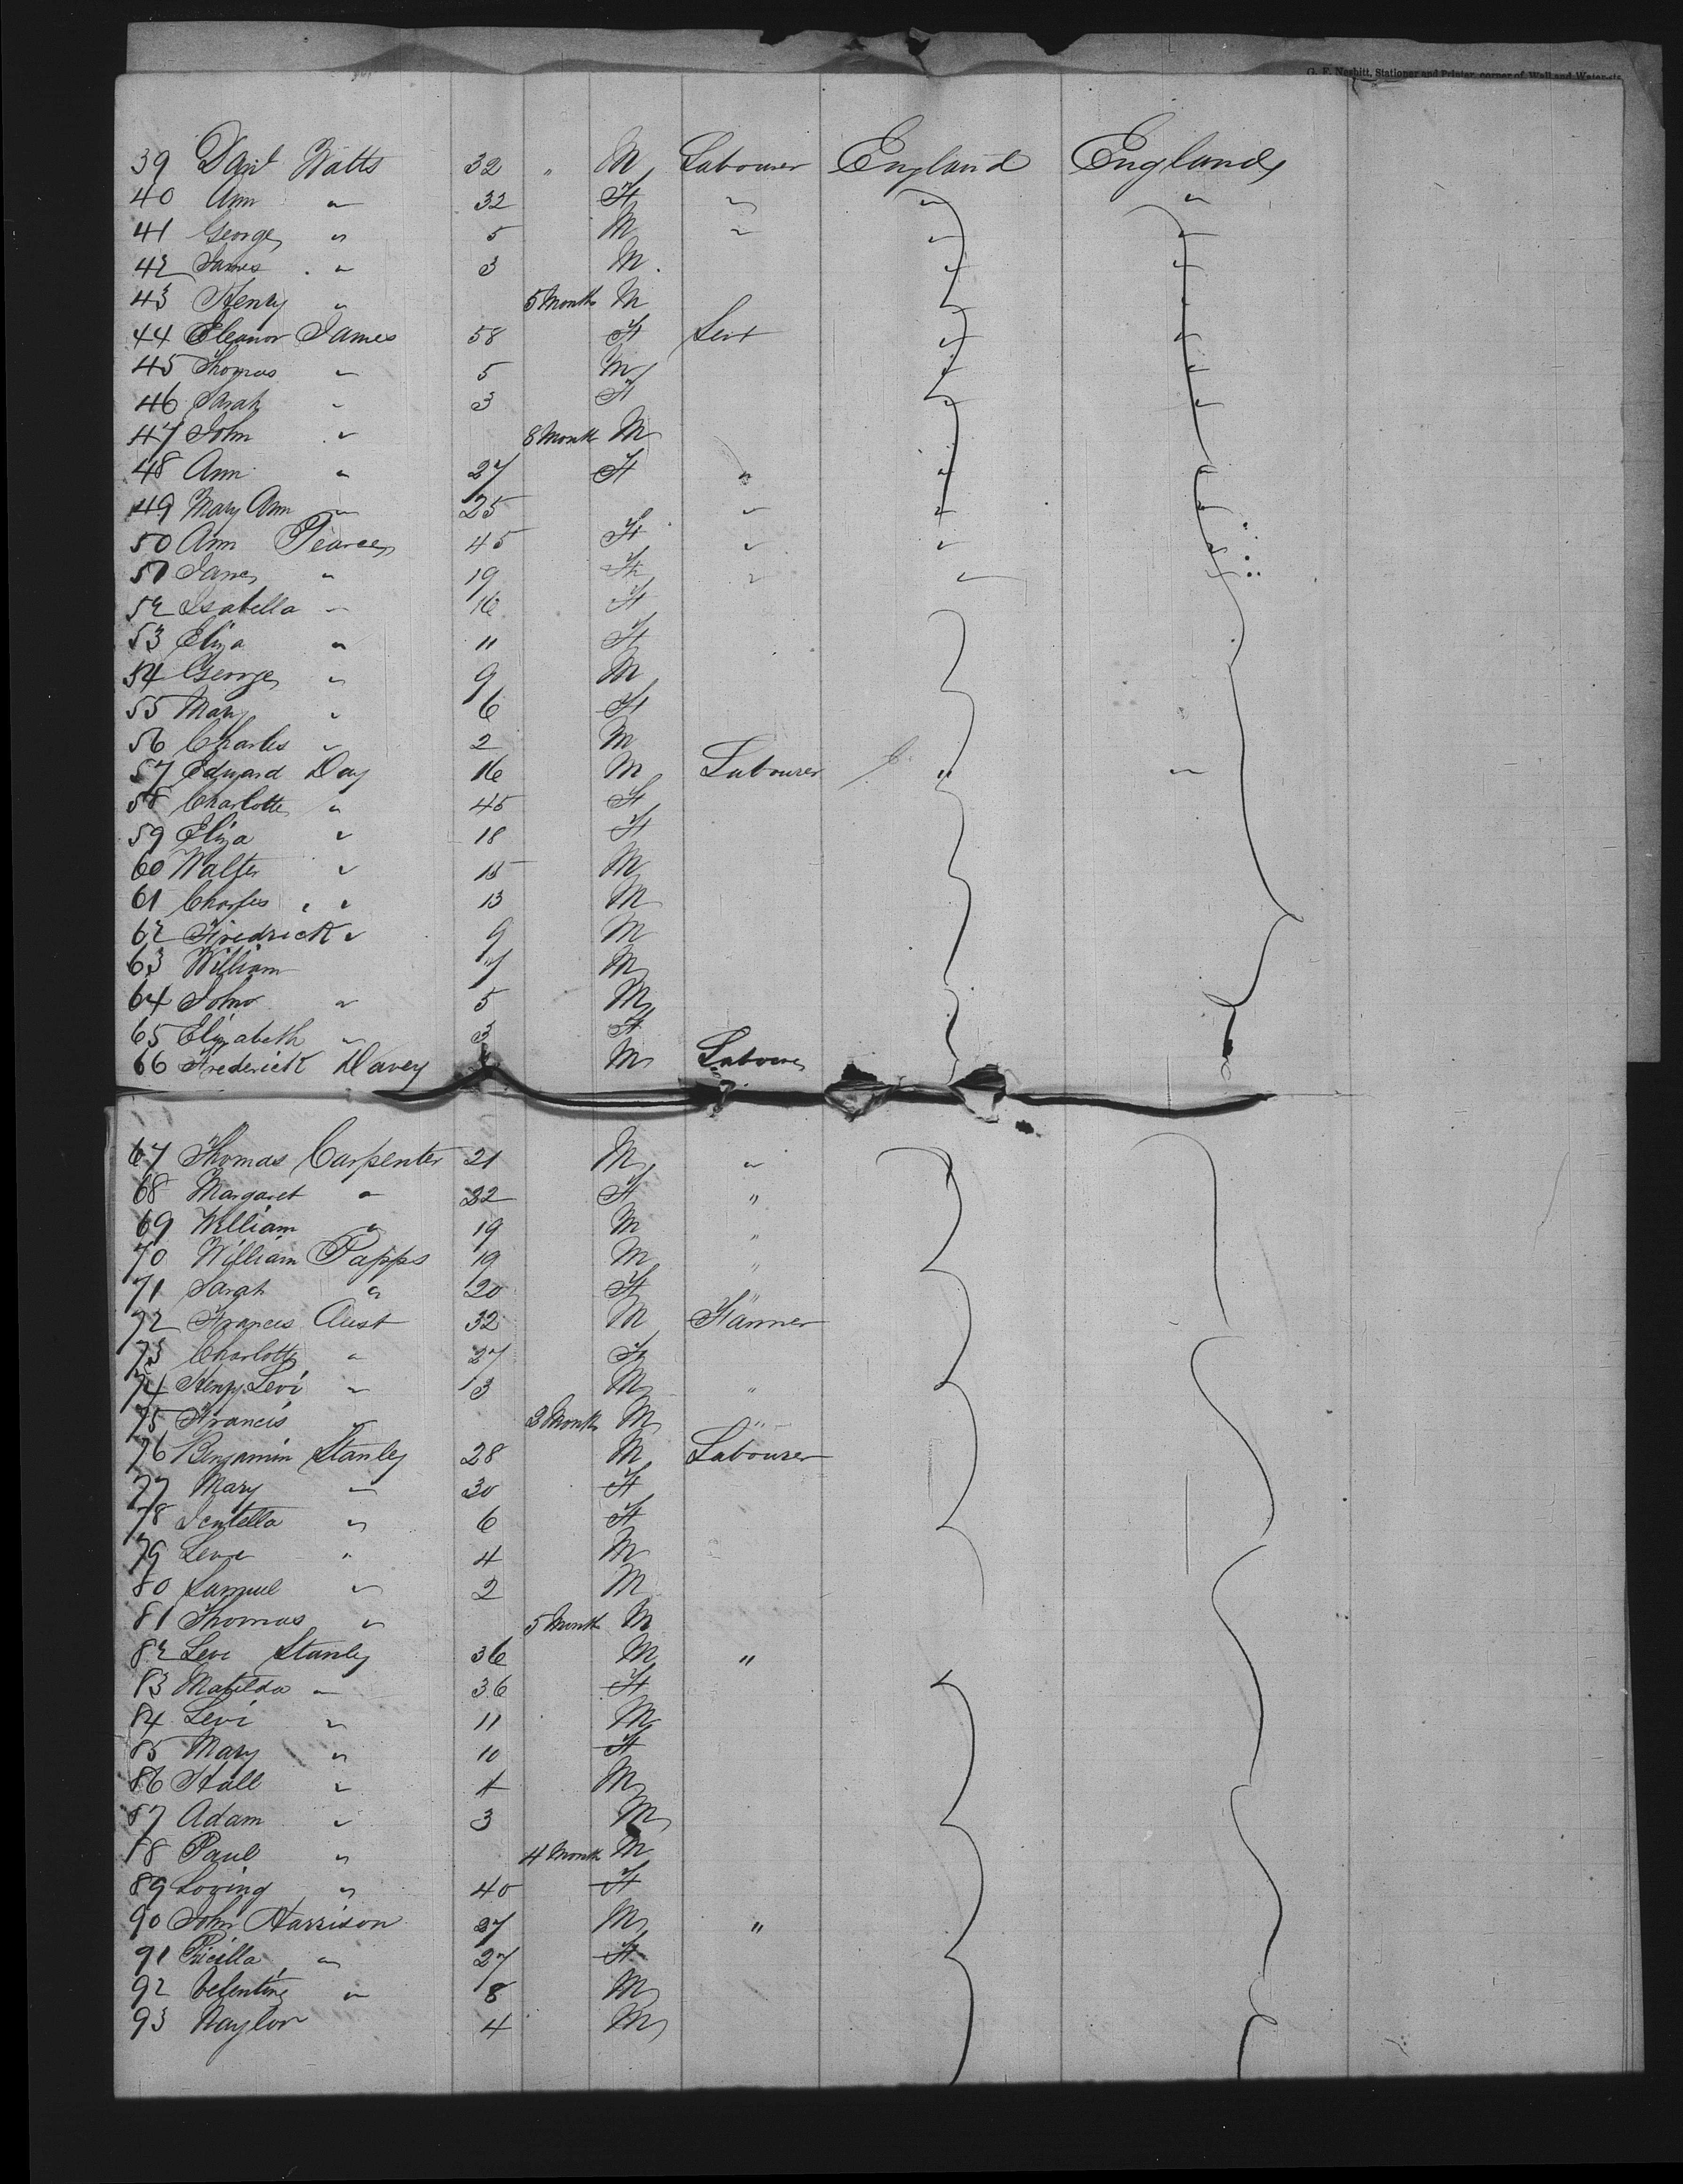 G. F. Nesbitt, Stationer and Printer, corner of Wall and Water-sts
39 Danl Watts 32 " M Labourer England England
40 Ann " 32 F " " "
41 George " 5 M " " "
42 James " 3 M " "
43 Henry " 5 Months M
44 Eleanor James 58 F " "
45 Thomas " 5 M " "
46 Sarah " 3 F " "
47 John " 8 Month M
48 Ann " 27 F " " "
49 Mary Ann " 25 " " "
50 Ann Pearce 45 F " " "
51 Jane " 19 F " " "
52 Isabella " 16 F
53 Eliza " 11 F
54 George " 9 M
55 Mary " 6 F
56 Charles " 2 M
57 Edward Day 16 M Labourer " "
58 Charlotte " 45 F
59 Eliza " 18 F
60 Walter " 15 M
61 Charles " " 13 M
62 Fredrick " 9 M
63 William 7 M
64 John " 5 M
65 Elizabeth " 3 F
66 Frederick Davey M Laboure
67 Thomas Carpenter 21 M "
68 Margaret " 32 F "
69 William " 19 M "
70 William Papps 19 M "
71 Sarah " 20 F "
72 Francis Aust 32 M Farmer
73 Charlotte " 27 F
74 Henry Levi " 3 M "
75 Francis " 3 Month M "
76 Benjamin Stanley 28 M Labourer
77 Mary " 30 F
78 " 6 F
79 " 4 M
80 Samuel " 2 M
81 Thomas " 5 Month M
82 Levi Stanley 36 M "
83 Matilda " 36 F
84 Levi " 11 M
85 Mary " 10 F
86 " 4 M
87 Adam " 3 M
88 Paul " 4 Month M
89 " 40 F
90 John Harrison 27 M "
91 Pricilla " 27 F
92 Velentine " 8 M
93 Naylor 4 M